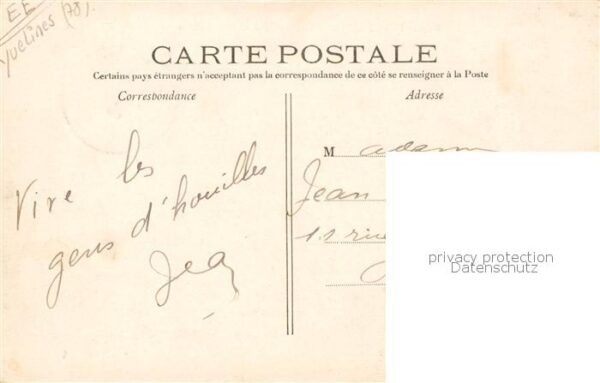 EE
Yvelines (78).
CARTE POSTALE
Certains pays étrangers n'acceptant pas la correspondance de ce côté se renseigner à la Poste
Correspondance
Adresse
Vive les
gens d'houilles
M adam
Jean
11 rue
privacy protection
Datenschutz